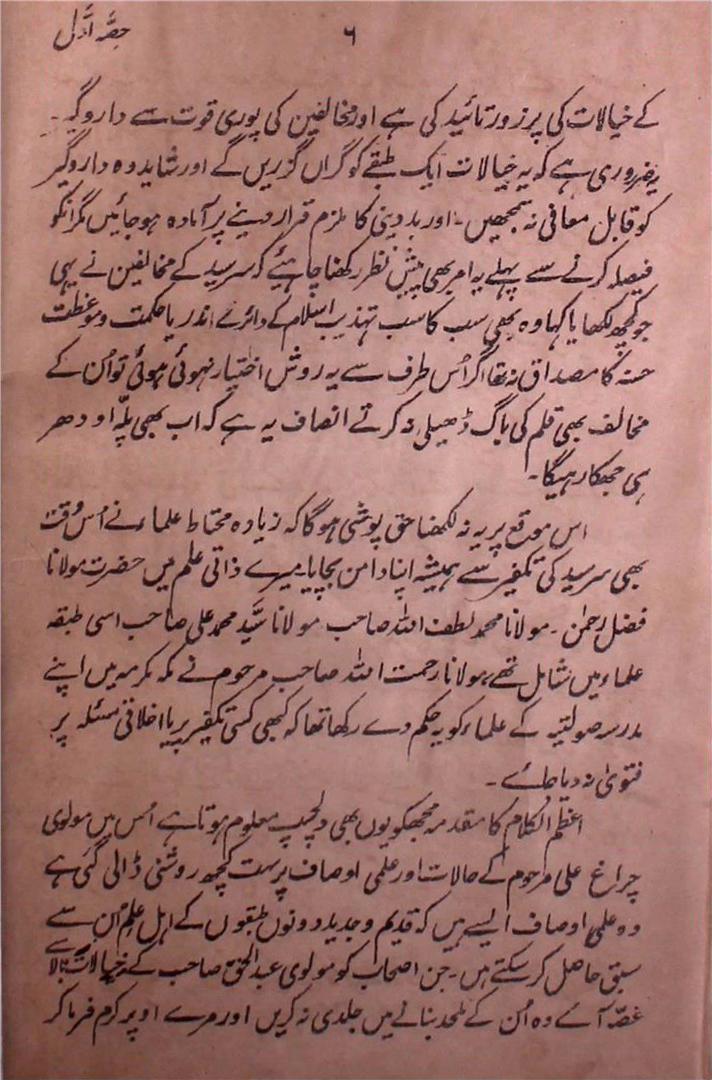 حصّہ اوّل
۶
کے خیالات کی پرزور تائید کی ہے اور مخالفین کی پوری قوت سے داروگیر۔
یہ ضروری ہے کہ یہ خیالات ایک طبقے کو گراں گزریں گے اور شاید وہ داروگیر
کو قابل معافی نہ سمجھیں۔ اور بد دینی کا ملزم قرار دینے پر آمادہ ہو جائیں مگر انکو
فیصلہ کرنے سے پہلے یہ امر بھی پیش نظر رکھنا چاہیئے کہ سرسید کے مخالفین نے بھی
جو کچھ لکھا یا کہا وہ بھی سب کا سب تہذیب اسلام کے دائرے اندر یا حکمت و موعظت
حسنہ کا مصداق نہ تھا اگر اُس طرف سے یہ روش اختیار نہوئی ہوئی تو اُن کے
مخالف بھی قلم کی باگ ڈھیلی نہ کرتے انصاف یہ ہے کہ اب بھی پلّہ اودھر
ہی جھکا رہیگا۔
اس موقع پر یہ نہ لکھنا حق پوشی ہوگا کہ زیادہ محتاط علماء نے اُس وقت
بھی سرسید کی تکفیر سے ہمیشہ اپنا دامن بچایا۔ میرے ذاتی علم میں حضرت مولانا
فضل رحمٰن۔ مولانا محمد لطف اللہ صاحب مولانا سیّد محمد علی صاحب اسی طبقہ
علماء میں شامل تھے، مولانا رحمت اللہ صاحب مرحوم نے مکہ مکرمہ میں اپنے
مدرسہ صولتیہ کے علماء کو یہ حکم دے رکھا تھا کہ کبھی کسی تکفیر پر یا اخلاقی مسئلہ پر
فتویٰ نہ دیا جائے۔
اعظم الکلام کا مقدمہ مجھکو یوں بھی دلچسپ معلوم ہوتا ہے اُس میں مولوی
چراغ علی مرحوم کے حالات اور علمی اوصاف پر بہت کچھ روشنی ڈالی گئی ہے
وہ علمی اوصاف ایسے ہیں کہ قدیم و جدید دونوں طبقوں کے اہل علم اُن سے
سبق حاصل کر سکتے ہیں۔ جن اصحاب کو مولوی عبدالحق صاحب کے خیالات بالا سے
غصّہ آئے وہ اُن کے ملحد بنانے میں جلدی نہ کریں اور مرے اوپر کرم فرما کر